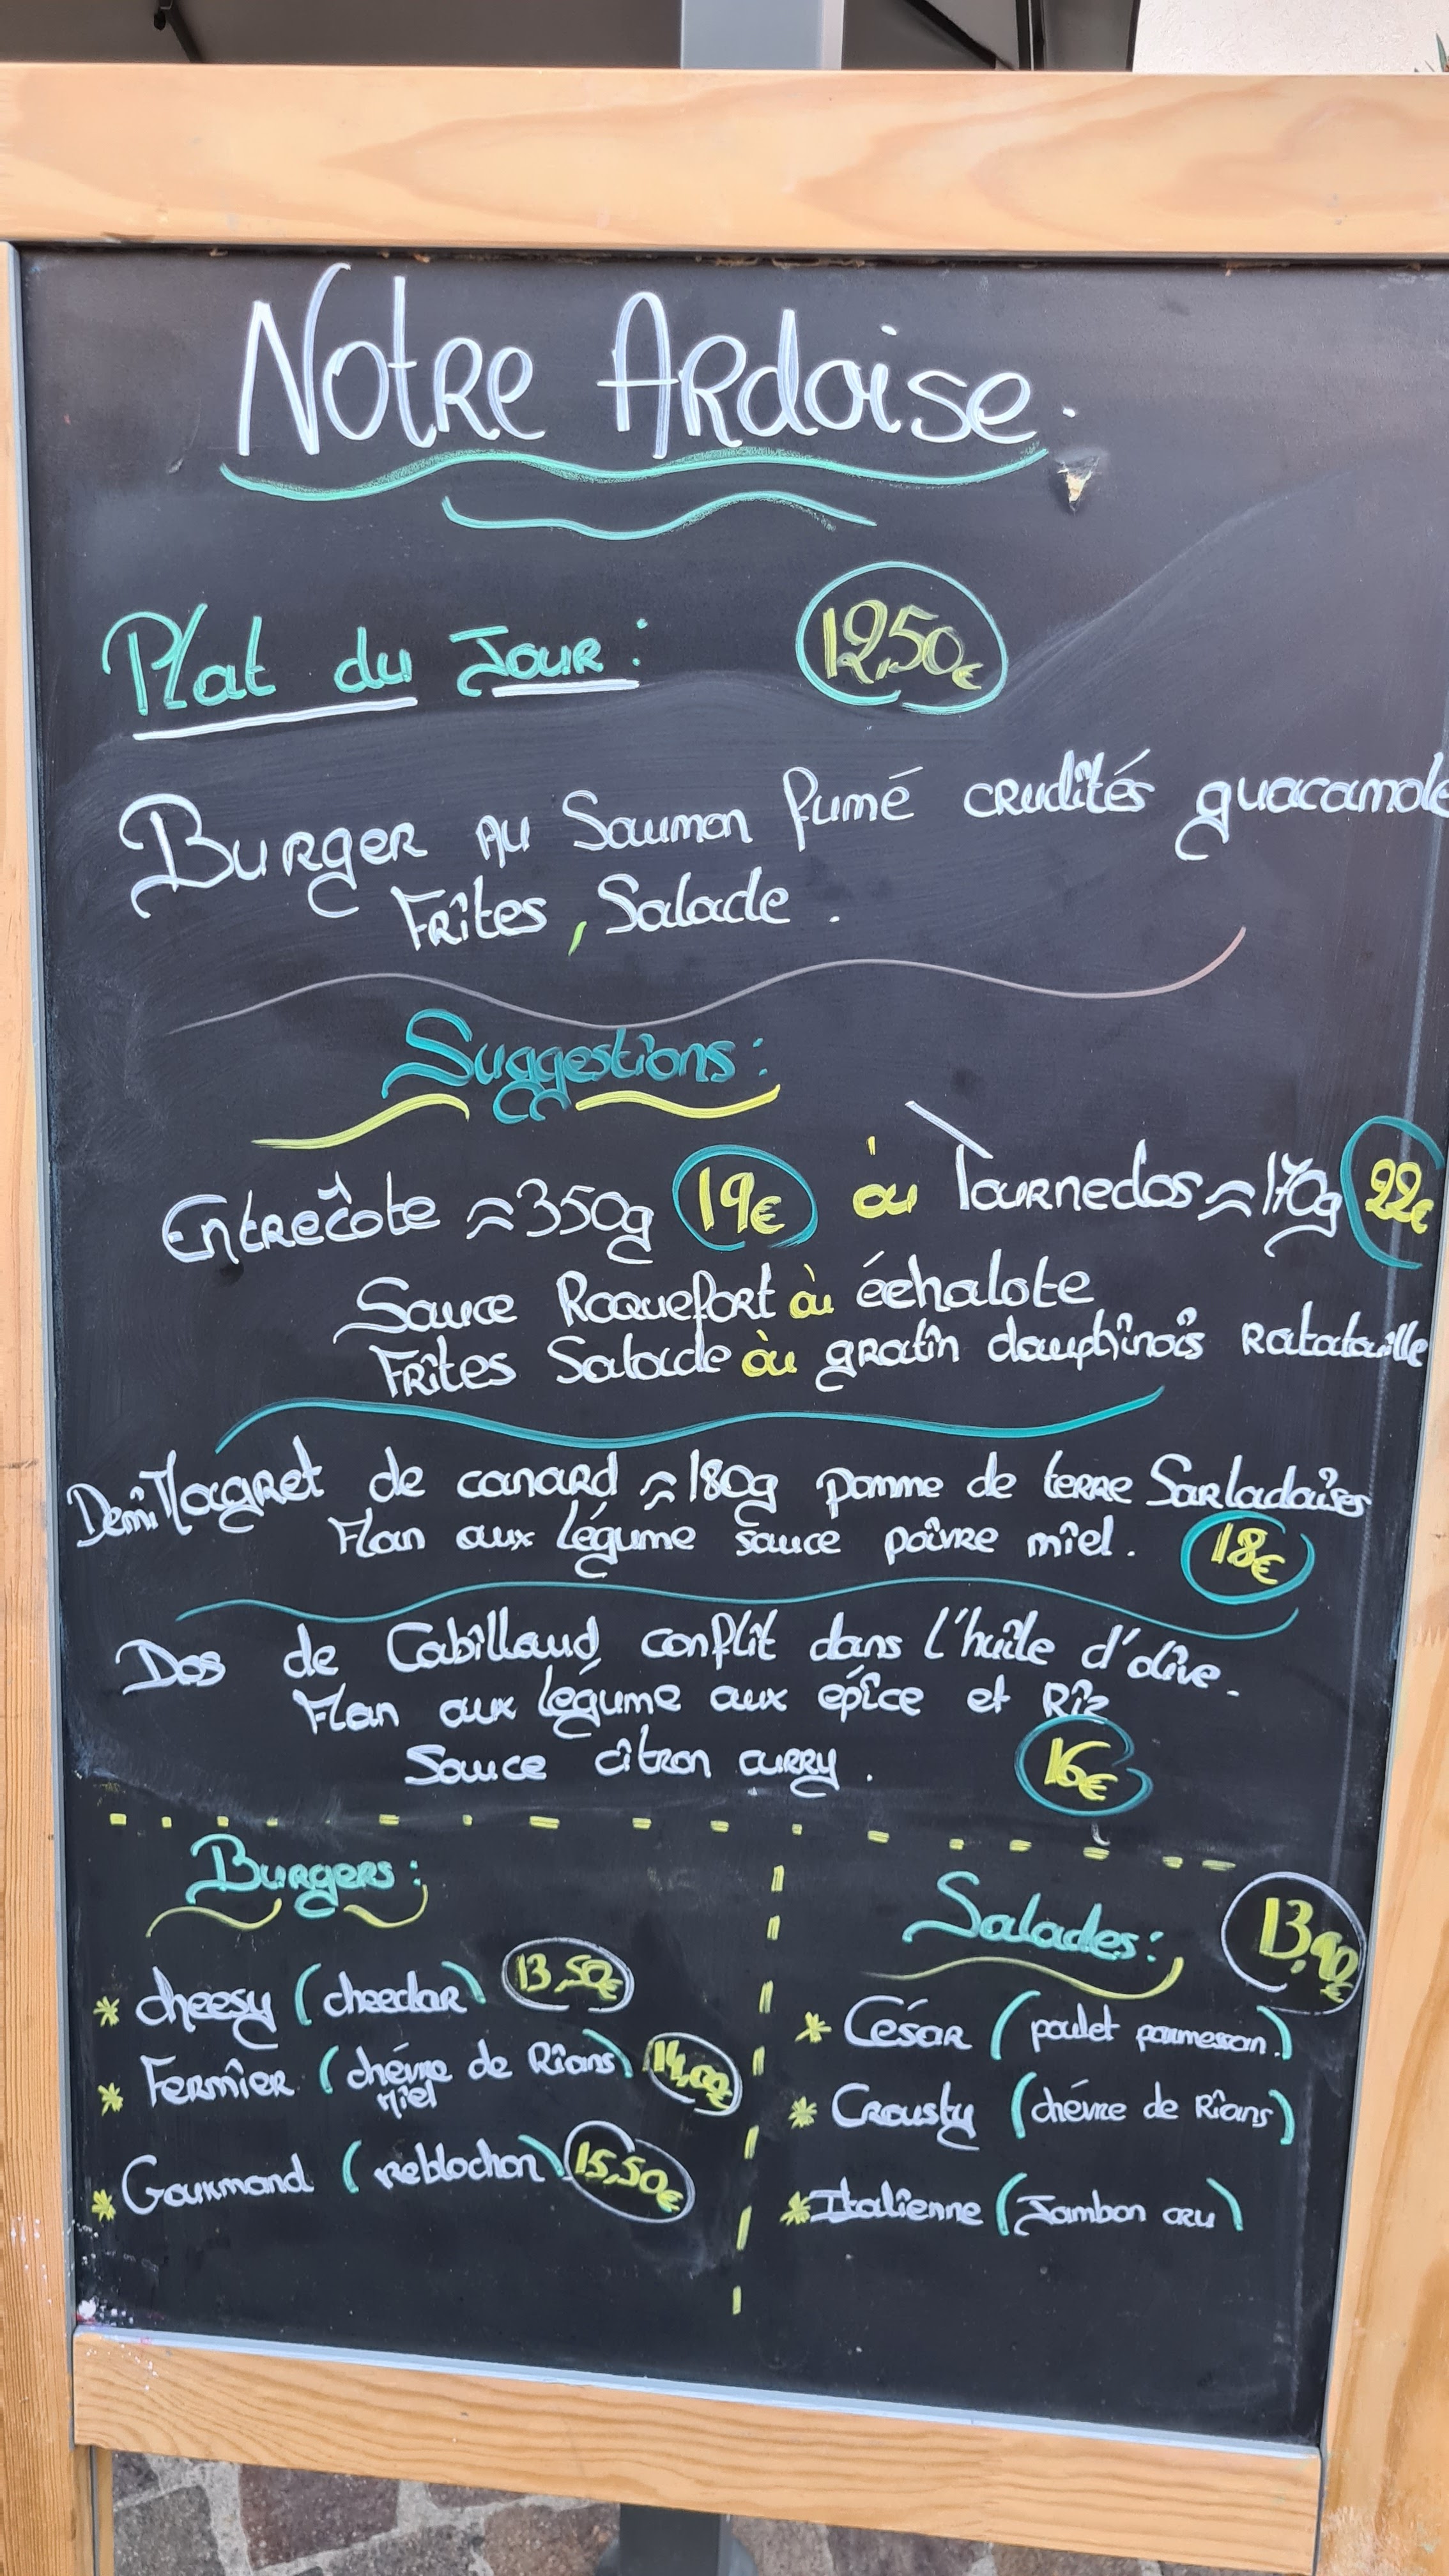 Notre Ardoise.
Plat du Jour : 12,50€
Burger au Saumon fumé crudités guacamole
Frîtes, Salade.
Suggestions :
Entrecôte ≈350g 19€ où Tournedos ≈170g 22€
Sauce Roquefort où échalote
Frîtes Salade où gratin dauphinois Ratatouille
Demi Magret de canard ≈180g pomme de terre Sarladaises
Flan aux légume sauce poivre miel. 18€
Dos de Cabillaud conflit dans l'huile d'olive.
Flan aux légume aux épice et Riz
Sauce citron curry. 16€
Burgers :
* cheesy (cheedar) 13,50€
* Fermier (chévre de Rians) 14,00€
miel
* Gourmand (reblochon) 15,50€
Salades : 13,90€
* César (poulet parmesan.)
* Crousty (chévre de Rians)
* Italienne (Jambon cru)